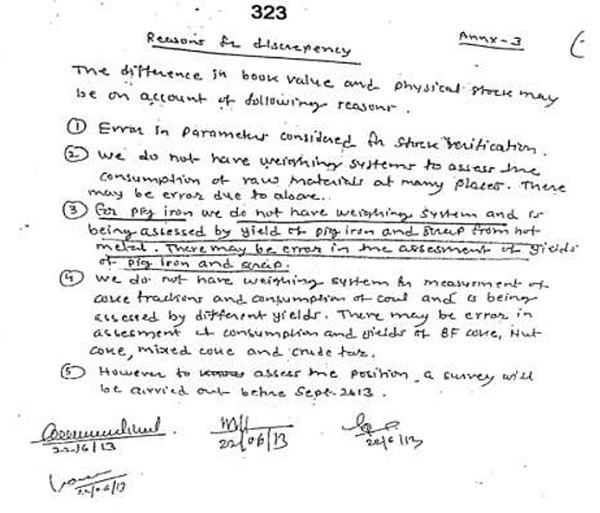 323
Annx-3
Reasons for discrepency
The difference in book value and physical stock may
be on account of following reasons.
① Error in parameters considered for stock verification.
② We do not have weighing systems to assess the
consumption of raw materials at many places. There
may be error due to above..
③ For pig iron we do not have weighing system and is
being assessed by yield of pig iron and scrap from hot
metal. There may be error in the assesment of yields
of pig iron and scrap.
④ We do not have weighing system for measurment of
coke fractions and consumption of coal and is being
assessed by different yields. There may be error in
assesment of consumption and yields of BF coke, Nut
coke, mixed coke and crude tar.
⑤ However to assess the position, a survey will
be carried out before Sept-2013.
22/6/13
22/06/13
22/6/13
22/06/13